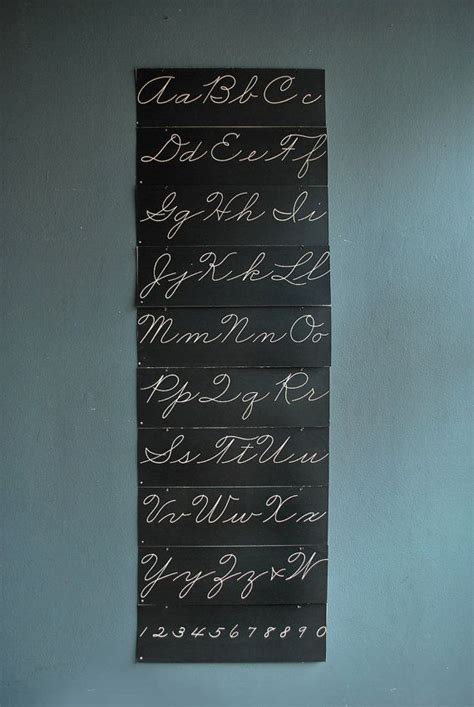 Aa Bb Cc
Dd Ee Ff
Gg Hh Ii
Jj Kk Ll
Mm Nn Oo
Pp Qq Rr
Ss Tt Uu
Vv Ww Xx
Yy Zz W
1 2 3 4 5 6 7 8 8 9 0